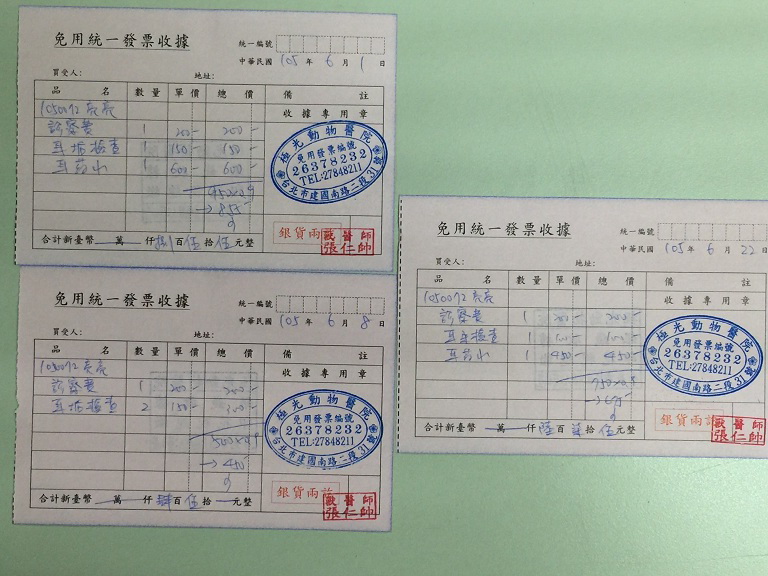 免用統一發票收據
統一編號
中華民國 105 年 6 月 1 日
買受人: 地址:
品名 數量 單價 總價 備註
1050072 亮亮 收據專用章
診察費 1 200- 200-
耳垢檢查 1 150- 150-
耳藥水 1 600- 600-
950x0.9
→855
極光動物醫院
免用發票編號
26378232
TEL:27848211
台北市建國南路二段31號
銀貨兩訖
獸醫師
張仁帥
合計新臺幣 萬 仟 捌 百 伍 拾 伍 元整
免用統一發票收據
統一編號
中華民國 105 年 6 月 8 日
買受人: 地址:
品名 數量 單價 總價 備註
1050072 亮亮 收據專用章
診察費 1 200- 200-
耳垢檢查 2 150- 300-
500x0.9
→450
極光動物醫院
免用發票編號
26378232
TEL:27848211
台北市建國南路二段31號
銀貨兩訖
獸醫師
張仁帥
合計新臺幣 萬 仟 肆 百 伍 拾 元整
免用統一發票收據
統一編號
中華民國 105 年 6 月 22 日
買受人: 地址:
品名 數量 單價 總價 備註
1050072 亮亮 收據專用章
診察費 1 200- 200-
檢查 1 100-
耳藥水 1 450- 450-
極光動物醫院
免用發票編號
26378232
TEL:27848211
台北市建國南路二段31號
銀貨兩訖
獸醫師
張仁帥
合計新臺幣 萬 仟 陸 百 拾 伍 元整